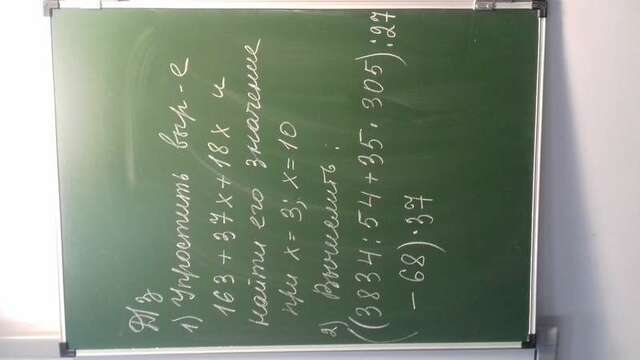 Д/з
1) Упростить выр-е
163+37х+18х и
найти его значение
при х=3; х=10
2) Вычислить:
((3834:54+35·305):27
-68)·37